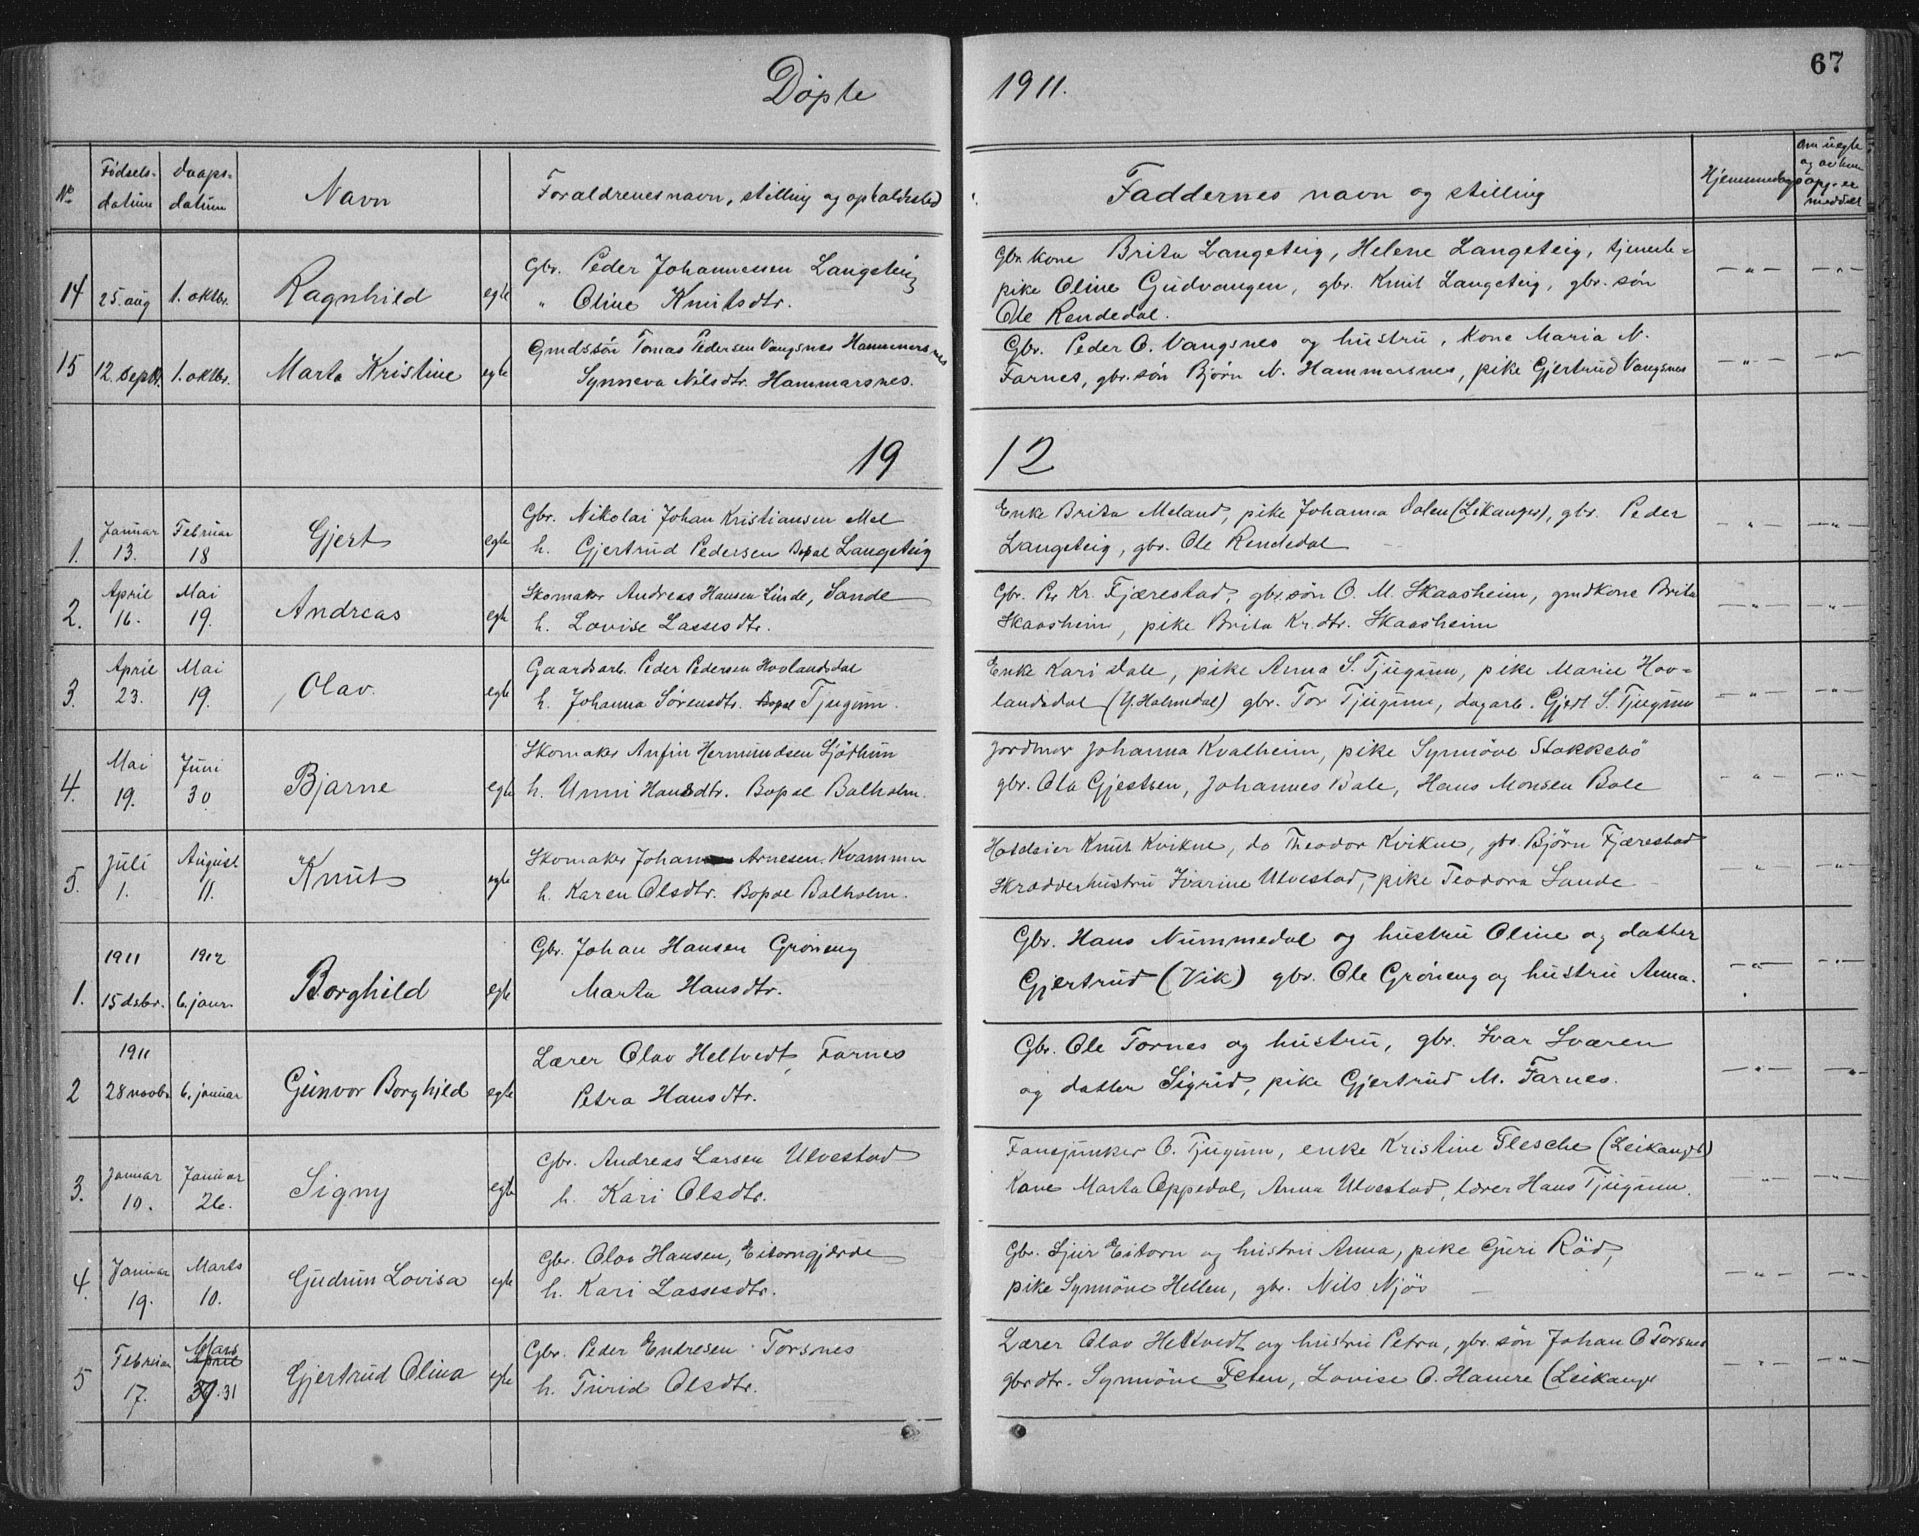 67
Døpte 1911.
No
Fødsels-
datum
Daaps-
datum
Navn
Foraldrenes navn, stilling og opholdssted
Faddernes navn og stilling
Hjemmedøp
Om uegte
14 25. aug 1. oktbr. Ragnhild egte
Gbr. Peder Johannessen Langeteig
" Oline Knutsdtr.
Gbr. kone Brita Langeteig, Helene Langeteig, tjeneste=
pike Oline Gudvangen, gbr. Knut Langeteig, gbr. søn
Ole Rendedal.
15 12. Septbr. 1. oktbr. Marta Kristine egte
Gmdssøn Tomas Pedersen Vangsnes Hammersnes
Synneva Nilsdtr. Hammarsnes.
Gbr. Peder O. Vangsnes og hustru, Kone Maria N.
Farnes, gbr. søn Bjørn N. Hammersnes, pike Gjertrud Vangsnes
19 12
1. Januar 13. Februar 18 Gjert egte
Gbr. Nikolai Johan Kristiansen Mel
h. Gjertrud Pedersen Bopæl Langeteig
Enke Brita Meland, pike Johanna Dalen (Leikanger), gbr. Peder
Langeteig, gbr. Ole Rendedal
2. April 16. Mai 19. Andreas egte
Skomaker Andreas Hansen Linde, Sande
h. Lovise Lassesdtr.
Gbr. Per Kr. Fjærestad, gbr. søn O. M. Skaasheim, gmdkone Brita
Skaasheim, pike Brita Kr.dtr. Skaasheim
3. April 23. Mai 19. Olav. egte
Gaardsarb. Peder Pedersen Hovlandsdal
h. Johanna Sørensdtr. Bopæl Tjugum.
Enke Kari Dale, pike Anna S. Tjugum, pike Marie Hov=
landsdal (Y. Holmedal) gbr. Tor Tjugum, dagarb. Gjert S. Tjugum
4. Mai 19. Juni 30 Bjarne egte
Skomaker Anfin Hermundsen Sjøthun
h. Unni Hansdtr. Bopæl Balholm.
Jordmor Johanna Kvalheim, pike Synnøve Stokkebø
gbr. Ola Gjestsen, Johannes Bale, Hans Monsen Bale
5. Juli 1. August 11. Knut egte
Skomaker Johan Arnesen Kvamme
h. Karen Olsdtr. Bopæl Balholm.
Hoteleier Knut Kvikne, do Theodor Kvikne, gbr. Bjørn Fjærestad
Skrædderhustru Ivarine Ulvestad, pike Teodora Sande
1. 1911 15 dsbr. 1912 6. janr. Borghild egte
Gbr. Johan Hansen Grøneng
Marta Hansdtr.
Gbr. Hans Nummedal og hustru Oline og datter
Gjertrud (Vik) gbr. Ole Grøneng og hustru Anna.
2 1911 28 novbr 6. januar Gunvor Borghild egte
Lærer Olav Heltvedt, Farnes
Petra Hansdtr.
Gbr. Ole Tornes og hustru, gbr. Ivar Sværen
og datter Sigrid, pike Gjertrud M. Farnes.
3. Januar 10. Januar 26. Signy egte
Gbr. Andreas Larsen Ulvestad
h. Kari Olsdtr.
Fanejunker O. Tjugum, enke Kristine Flesche (Leikanger)
Kone Marta Oppedal, Anna Ulvestad, lærer Hans Tjugum.
4. Januar 19. Marts 10. Gudrun Lovisa egte
Gbr. Olav Hansen, Eitorngjærde
h. Kari Lassesdtr.
Gbr. Sjur Eitorn og hustru Anna, pike Guri Rød,
pike Synnøve Hellen, gbr. Nils Njøs
5 Februar 17. Mars April 31 Gjertrud Olina egte
Gbr. Peder Endresen Torsnes
h. Turid Olsdtr.
Lærer Olav Heltvedt og hustru Petra, gbr. søn Johan O Torsnes
gbr.dtr. Synnøve Feten, Lovise O. Hamre (Leikange